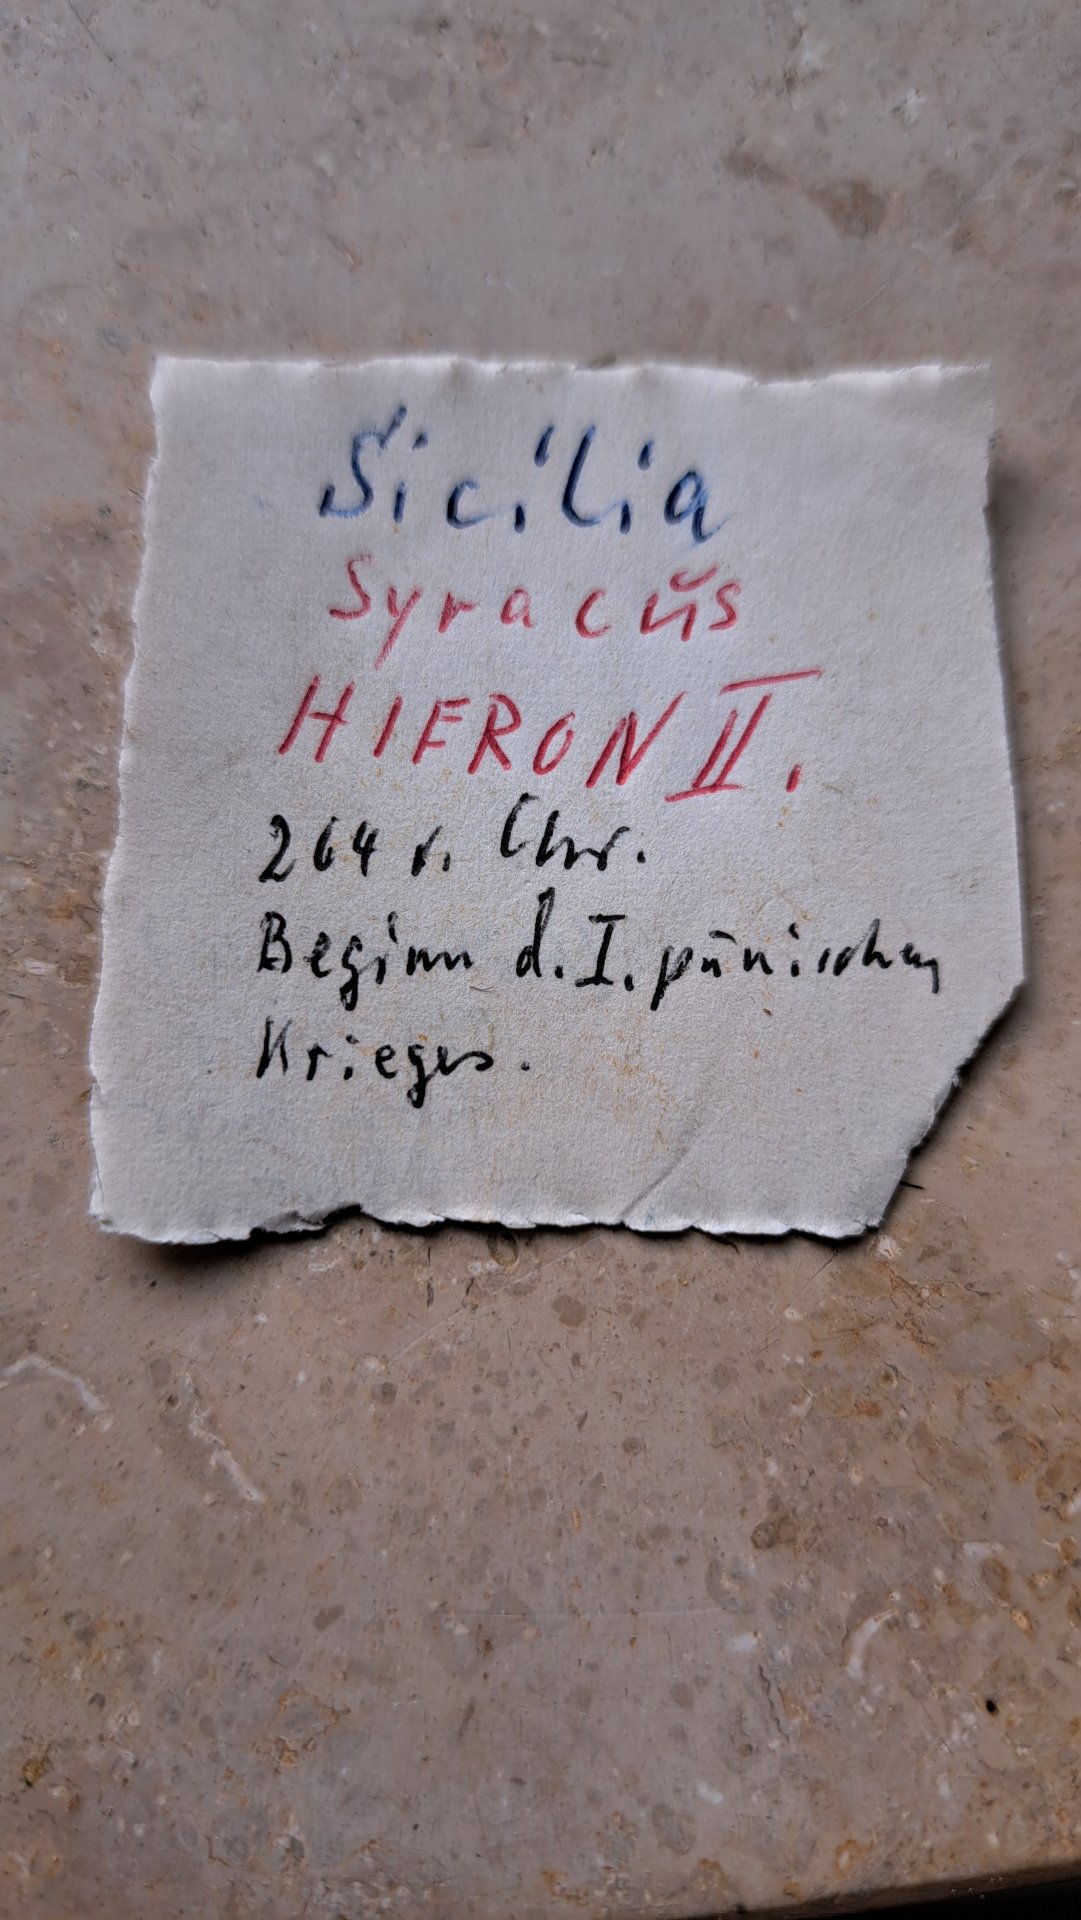 Sicilia
Syracus
HIERON II.
264 v. Chr.
Beginn d. I. punischen
Krieges.